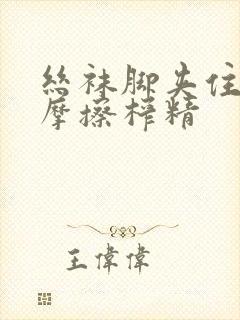 丝袜脚夹住
摩擦榨精
王偉偉